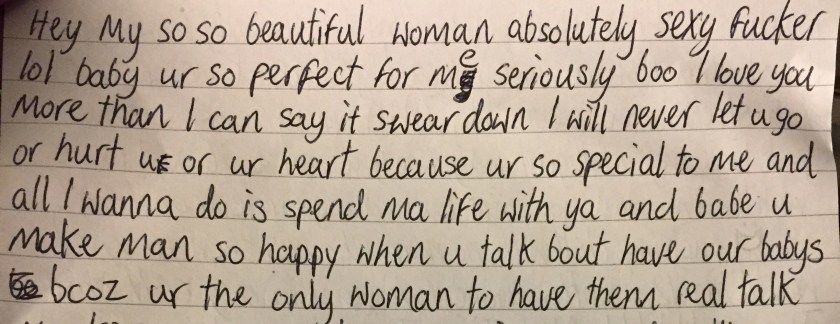 Hey My so so beautiful woman absolutely sexy fucker
lol baby ur so perfect for me seriously boo I love you
More than I can say it swear down I will never let u go
or hurt ur or ur heart because ur so special to me and
all I wanna do is spend ma life with ya and babe u
make man so happy when u talk bout have our babys
bcoz ur the only woman to have them real talk